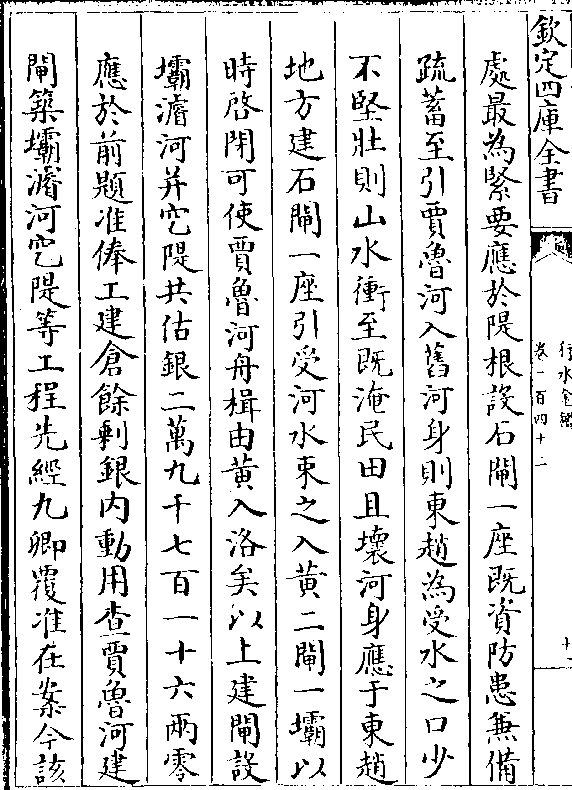 欽定四庫全書
行水金鑑
卷一百四十二
處最為緊要應於隄根設石閘一座既資防患兼備
疏蓄至引賈魯河入舊河身則東趙為受水之口少
不堅壯則山水衝至既淹民田且壞河身應于東趙
地方建石閘一座引受河水東之入黃二閘一壩以
時啓閉可使賈魯河舟楫由黃入洛矣以上建閘設
壩濬河并空隄共估銀二萬九千七百一十六兩零
應於前題准俸工建倉餘剩銀內動用查賈魯河建
閘築壩濬河空隄等工程先經九卿覆准在案今該